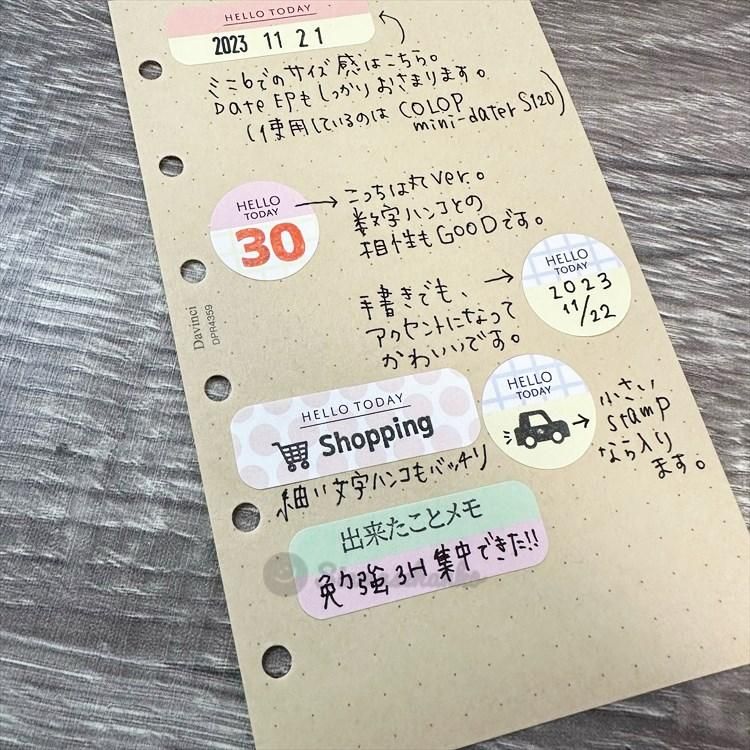 HELLO TODAY
2023 11 21
ミニ6でのサイズ感はこちら。
Date EPもしっかりおさまります。
(使用しているのは COLOP
mini-dater S120)
HELLO
TODAY
30
こっちは丸ver.。
数字ハンコとの
相性もGOODです。
HELLO
TODAY
2023
11/22
手書きでも、
アクセントになって
かわいいです。
Davinci
DPR4359
HELLO TODAY
Shopping
HELLO
TODAY
小さい
stamp
なら入り
ます。
細い文字ハンコもバッチリ
出来たことメモ
勉強3H集中できた!!